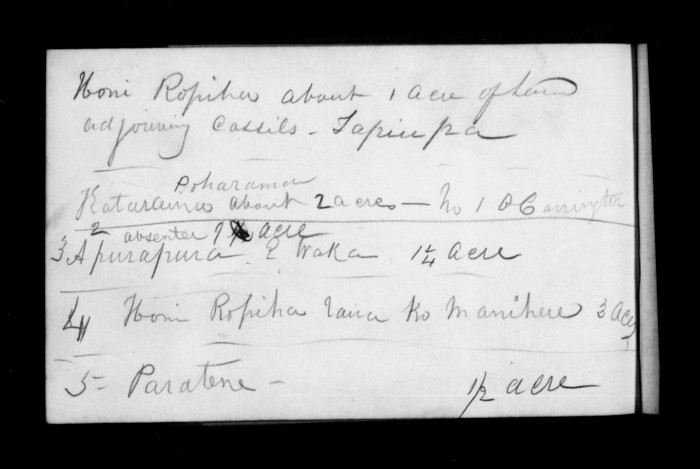 Honi Ropiha about 1 acre of land
adjoining Cassils -
Poharama
Kataraina about 2 acres - No 1 O Carrington
2 absenter acre
3 Apurapura E Waka 1 1/4 acre
4 Honi Ropiha raua ko Manihere 3 Ac
5 - Paratene - 1/2 acre